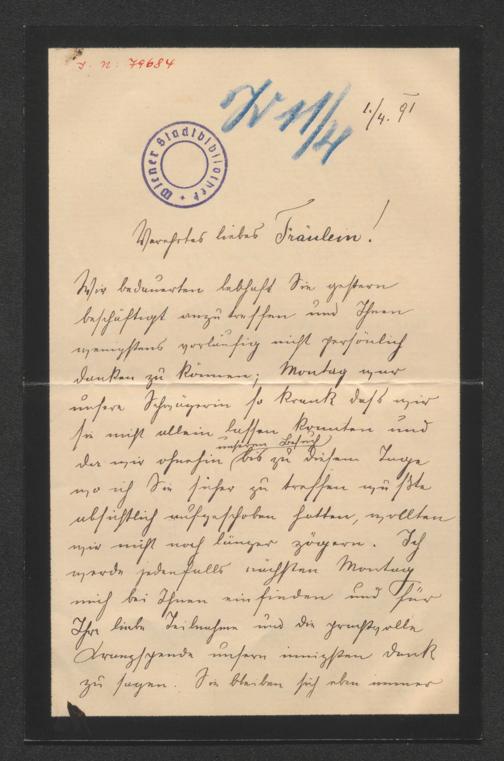 J. N: 79684
1./4. 91
Wiener Stadtbibliothek
Verehrtes liebes Fräulein!
Wir bedauerten lebhaft Sie gestern
beschäftigt anzutreffen und Ihnen
wenigstens vorläufig nicht persönlich
danken zu können; Montag war
unsere Schwägerin so krank daß wir
sie nicht allein lassen konnten und
unseren Besuch
da wir ohnehin bis zu diesem Tage
wo ich Sie sicher zu treffen wußte
absichtlich aufgeschoben hatten, wollten
wir nicht noch länger zögern. Ich
werde jedenfalls nächsten Montag
mich bei Ihnen einfinden und für
Ihre liebe Teilnahme und die prachtvolle
Kranzspende unsern innigsten Dank
zu sagen. Sie bleiben sich eben immer